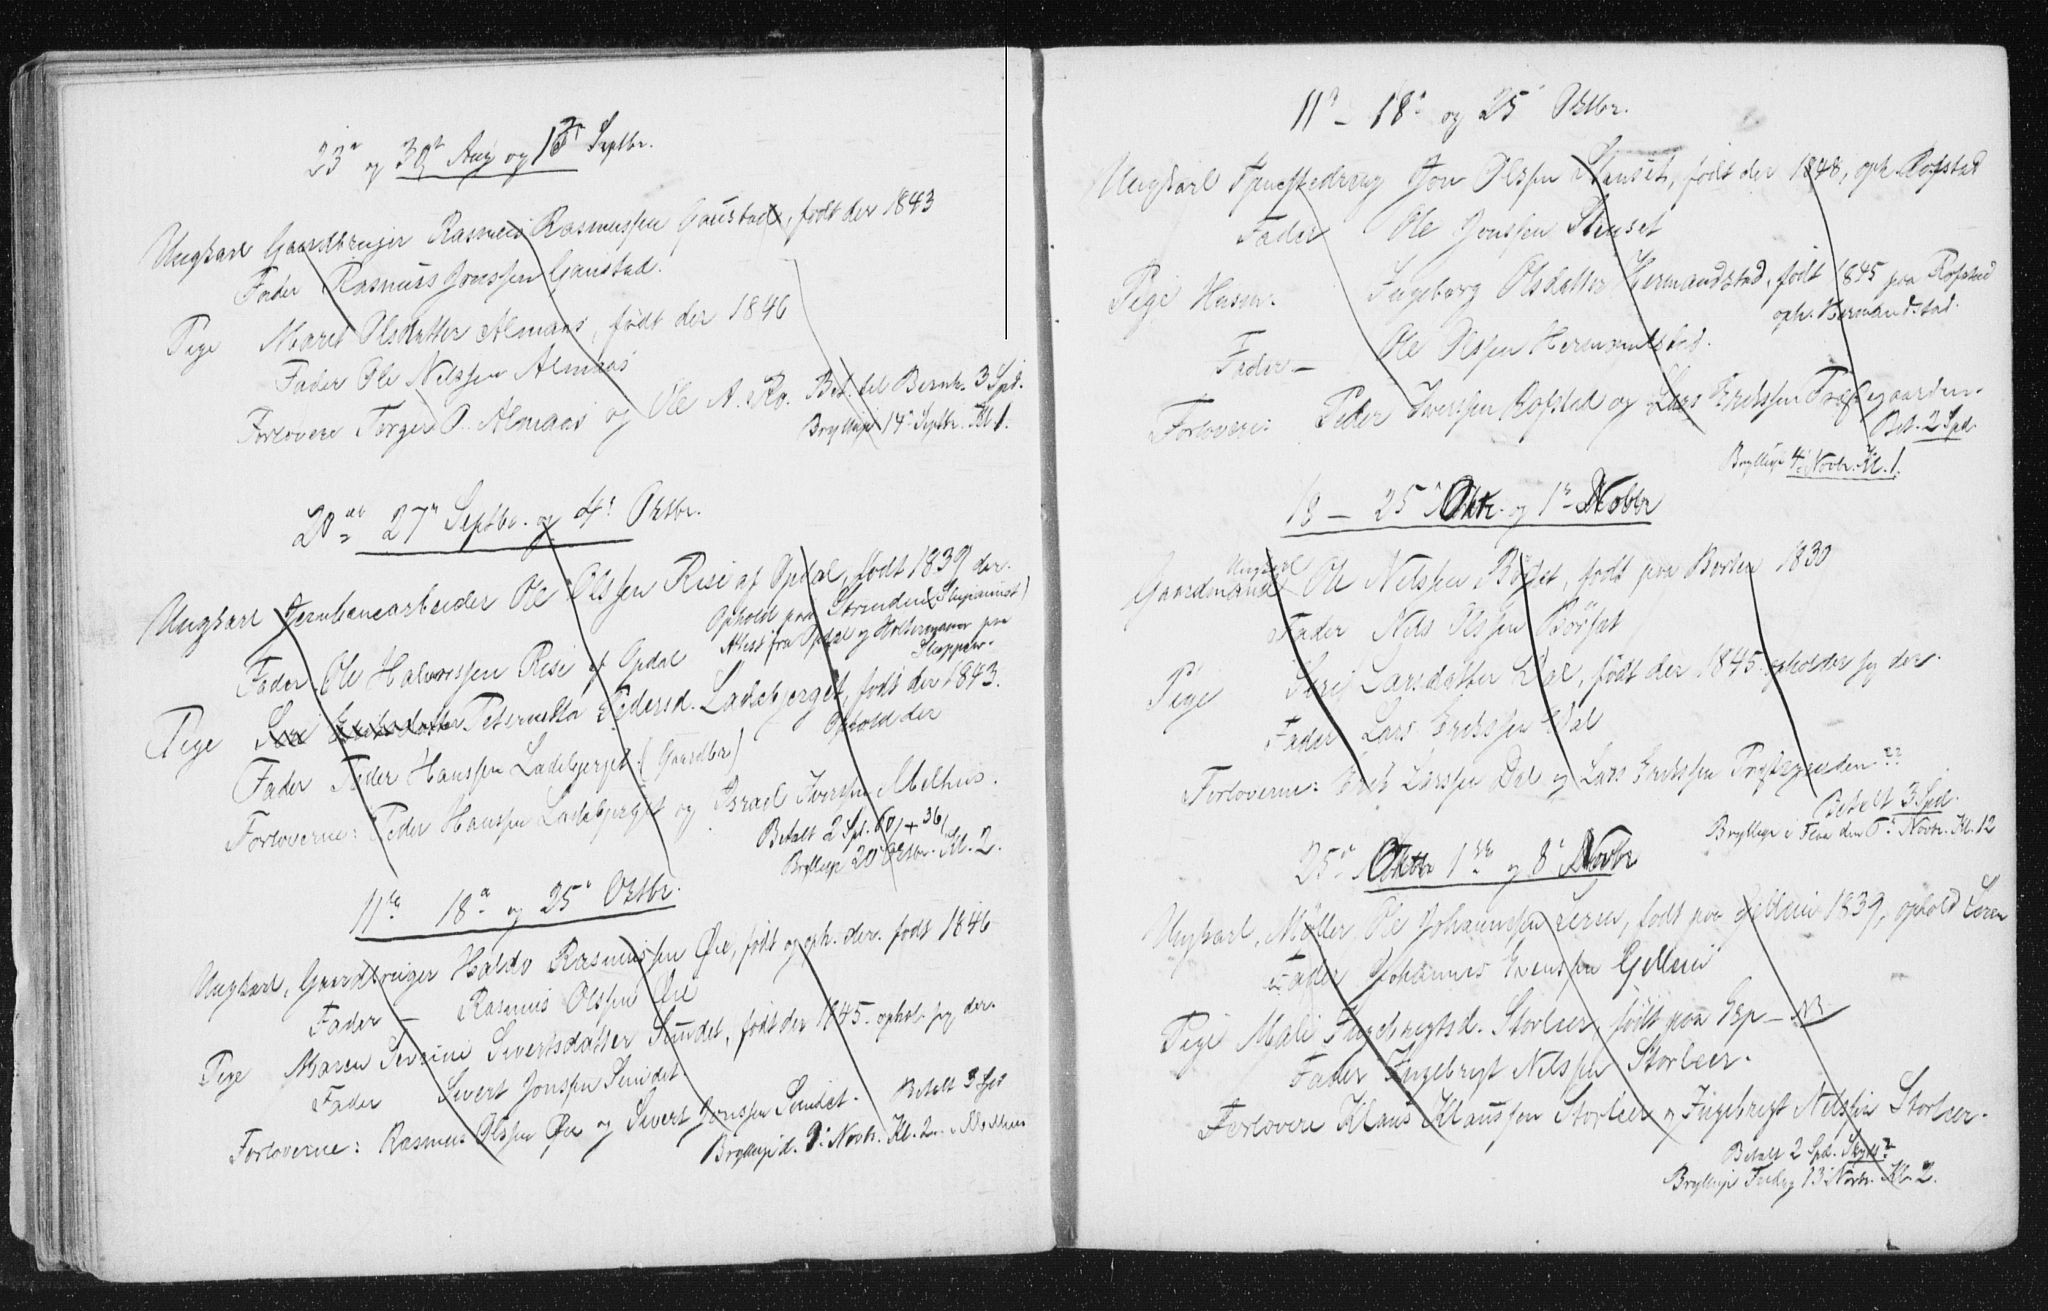 23de og 30te Aug og 13de Septbr.
Ungkarl Gaardbruger Rasmus Rasmussen Gaustad, født der 1843
Fader Rasmus Jonssen Gaustad.
Pige Maret Olsdatter Almaas, født der 1846
Fader Ole Nilssen Almaas
Forlovere Torger O. Almaas og Ole A. Ro. Bet. til Bernh. 3 Spd.
Bryllup 14de Septbr. Kl 1.
20de 27de Septbr. og 4de Oktbr.
Ungkarl Jernbanearbeider Ole Olssen Risi af Opdal, født 1839 der.
Ophold paa Strinden
Attest fra Opdal og
Fader Ole Halvorssen Risi af Opdal
Pige Peternella Pedersd. Ladebjerget, født der 1843.
Ophold der
Fader Peder Hanssen Ladebjerget (Gaardbr)
Forloverne: Peder Hanssen Ladebjerget og Israel Iverssen Melhus.
Betalt 2 Spd. 60 + 36
Bryllup 20 Oktbr. Kl. 2.
11te 18de og 25de Oktbr.
Ungkarl, Gaardbruger Haldo Rasmussen Øie, født og oph. der. født 1846
Fader – Rasmus Olssen Øie
Pige Maren Sivertsdatter Sundet, født der 1845. ophol. sig der.
Fader Sivert Jonssen Sundet
Forloverne: Rasmus Olssen Øie og Sivert Jonssen Sundet. Betalt 3 Spd
Bryllup d. Novb. Kl. 2.
11te – 18de og 25de Oktbr.
Ungkarl Jon Olssen Stenset, født der 1848, oph. Rofstad
Fader Ole Jonssen Stenset
Pige Husm. Ingeborg Olsdatter Hermandstad, født 1845 paa Rofstad
oph. Hermandstad.
Fader – Ole Olssen Hermandstad.
Forlovere: Peder Iverssen Rofstad og Lars Erikssen Præstegaarden.
Bet. 2 Spd.
Bryllup 4de Novbr. Kl. 1.
18 – 25de Oktr. og 1ste Nobbr
Ungkarl
Gaardmand Ole Nilssen Børset, født paa Borten 1830
Fader Nils Olssen Børset
Pige Siri Larsdatter Dal, født der 1845. opholder sig der.
Fader Lars Erikssen Dal
Forloverne: Erik Larssen Dal og Lars Erikssen
Betalt 3 Spd.
Bryllup i Flaa den 6te Novbr. Kl. 12
25de Oktbr 1ste og 8de Novbr
Ungkarl, Møller Ole Johannssen Leren, født paa 1839, ophold Leren
Fader Johannes
Pige Mali Ingebrigtsd. Storleer, født paa Esp –
Fader Ingebrigt Nilssen Storleer.
Forlovere Klaus Klaussen Storleer og Ingebrigt Nilssen Storleer.
Betalt 2 Spd.
Bryllup Fredag 13 Novbr. Kl. 2.